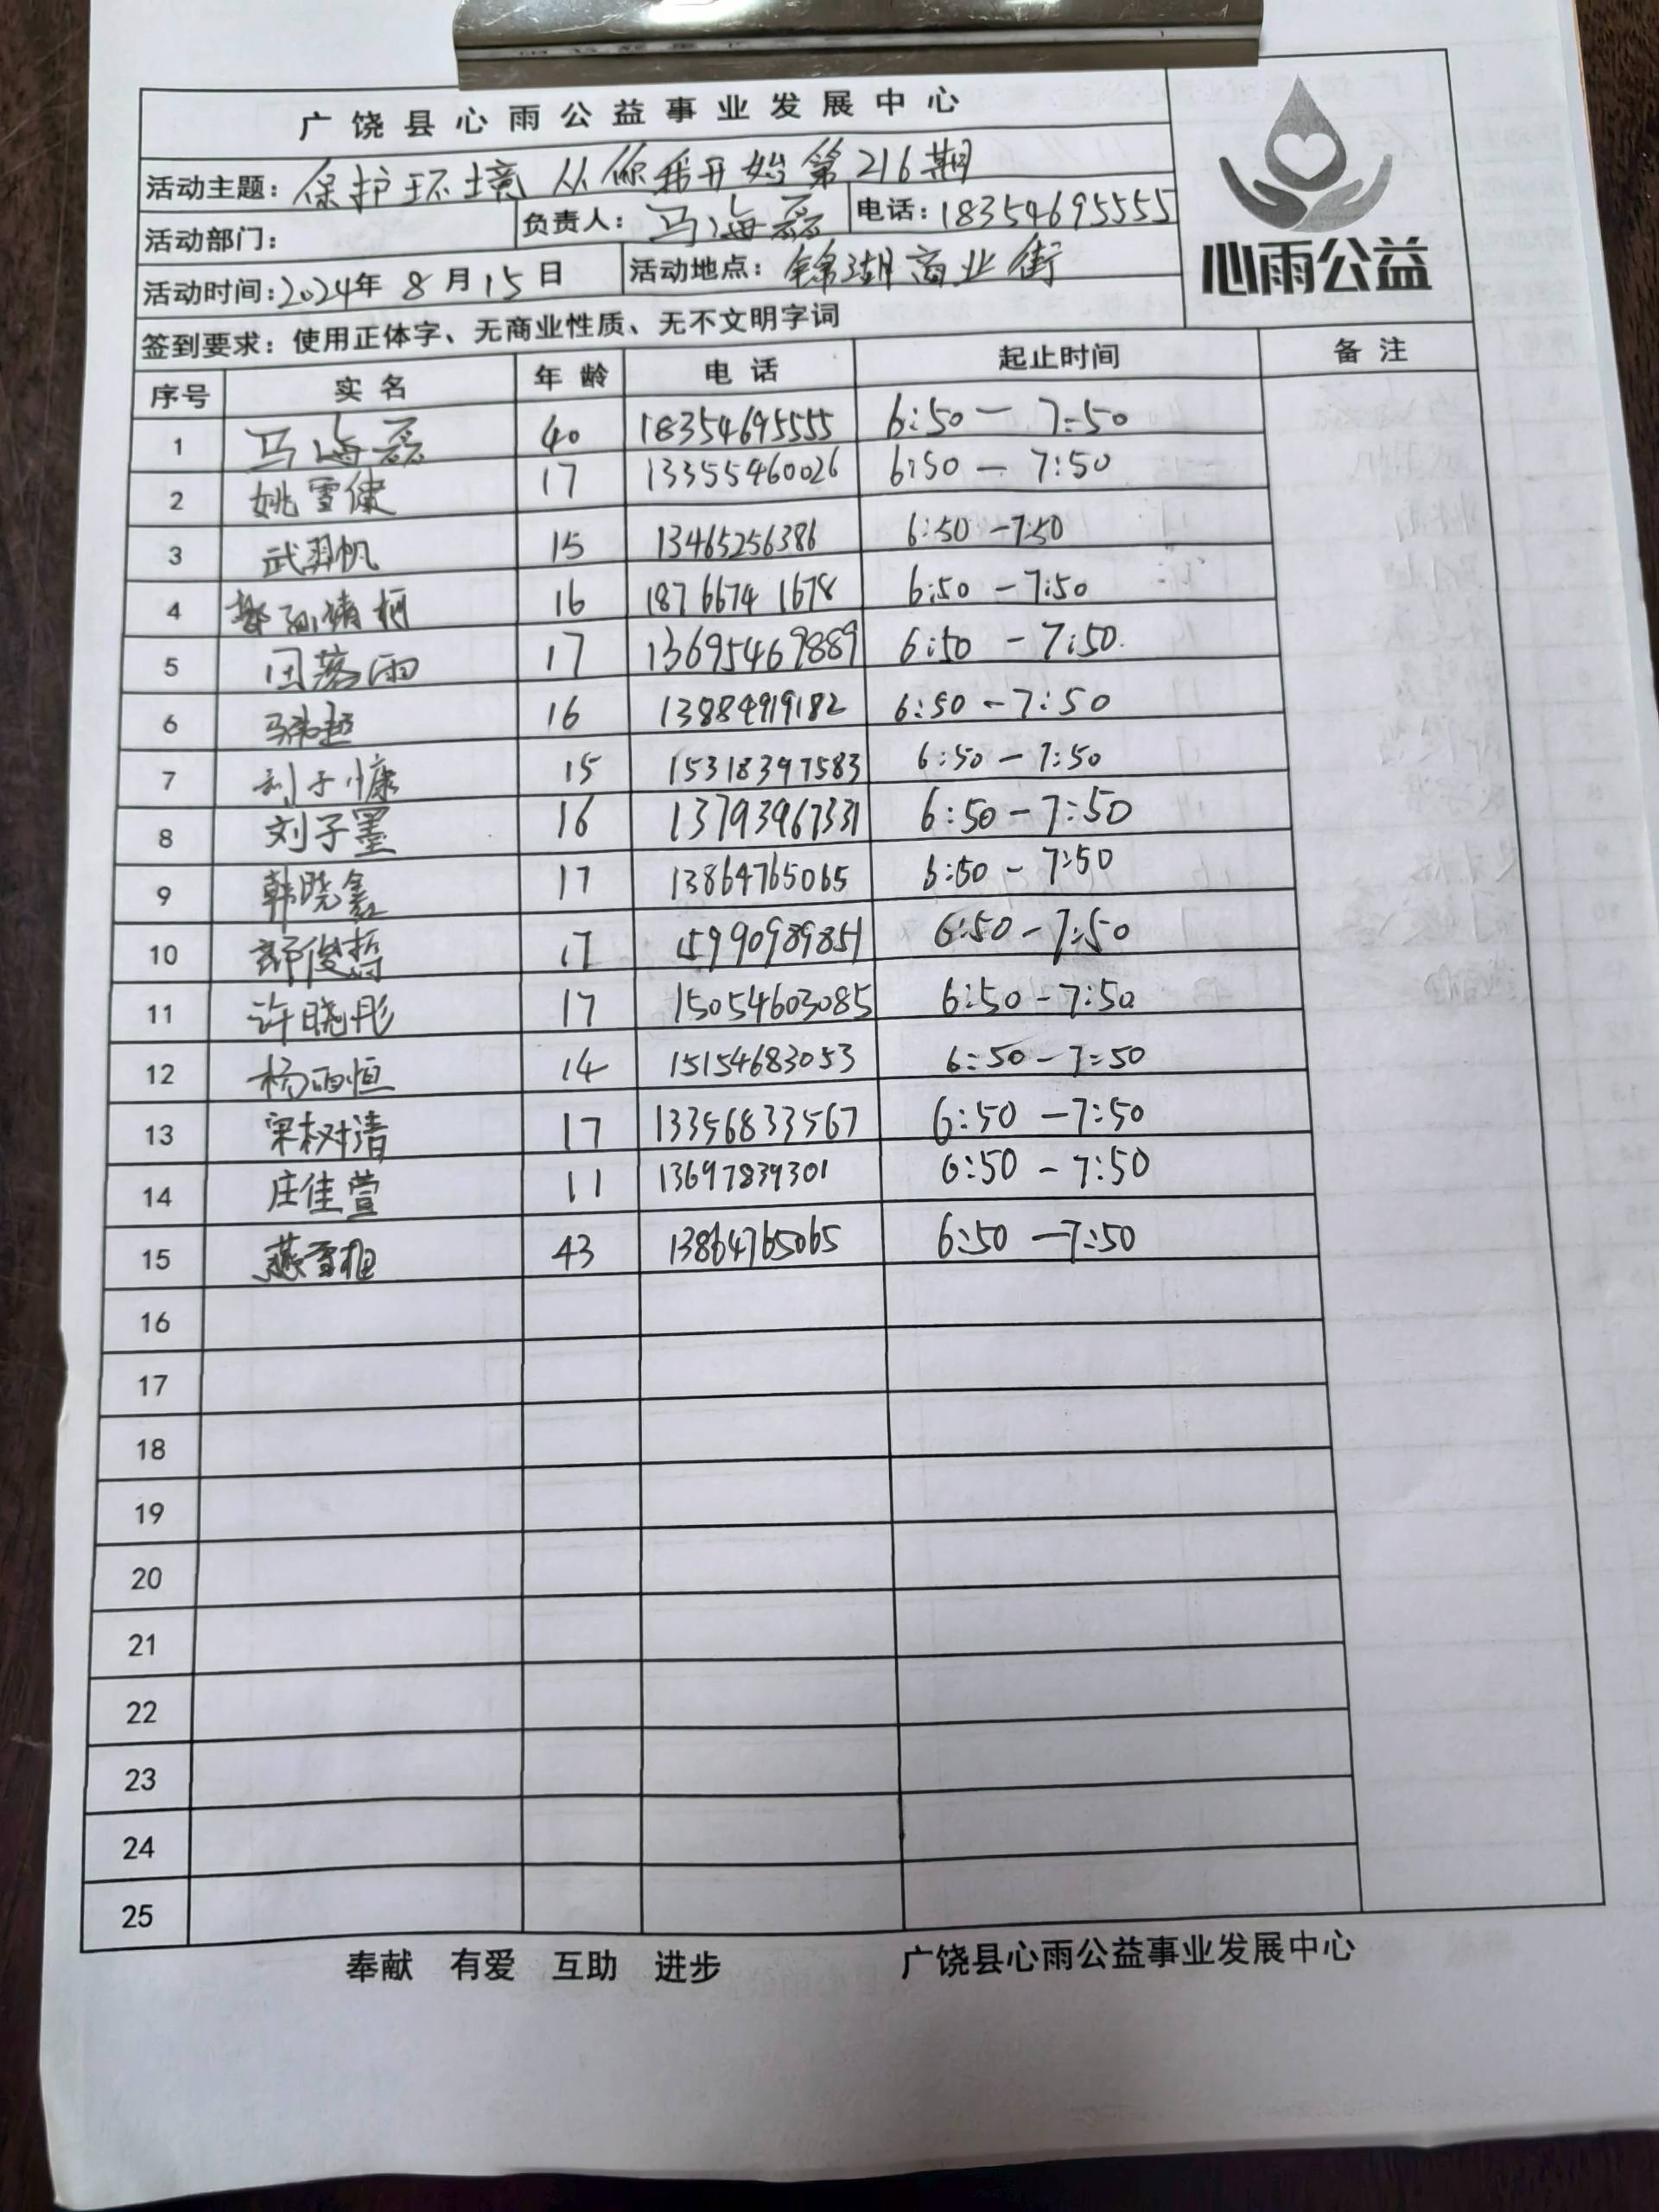 广饶县心雨公益事业发展中心
活动主题: 保护环境 从你我开始 第216期
活动部门: 负责人: 马海磊 电话: 18354695555
活动时间: 2024年 8月15日 活动地点: 锦湖商业街
心雨公益
签到要求: 使用正体字、无商业性质、无不文明字词
序号 实名 年龄 电话 起止时间 备注
1 马海磊 40 18354695555 6:50 — 7:50
2 姚雪健 17 13355460026 6:50 — 7:50
3 武羿帆 15 13465256386 6:50 — 7:50
4 16 18766741678 6:50 — 7:50
5 田落雨 17 13695469889 6:50 — 7:50.
6 16 13884919182 6:50 — 7:50
7 刘子慷 15 15318397583 6:50 — 7:50
8 刘子墨 16 13793967331 6:50 — 7:50
9 韩晓鑫 17 13864765065 6:50 — 7:50
10 俊哲 17 15990989851 6:50 — 7:50
11 许晓彤 17 15054603085 6:50 — 7:50
12 杨雨恒 14 15154683053 6:50 — 7:50
13 宋树清 17 13356833567 6:50 — 7:50
14 庄佳萱 11 13697839301 6:50 — 7:50
15 燕雪梅 43 13864765065 6:50 — 7:50
16
17
18
19
20
21
22
23
24
25
奉献 有爱 互助 进步 广饶县心雨公益事业发展中心